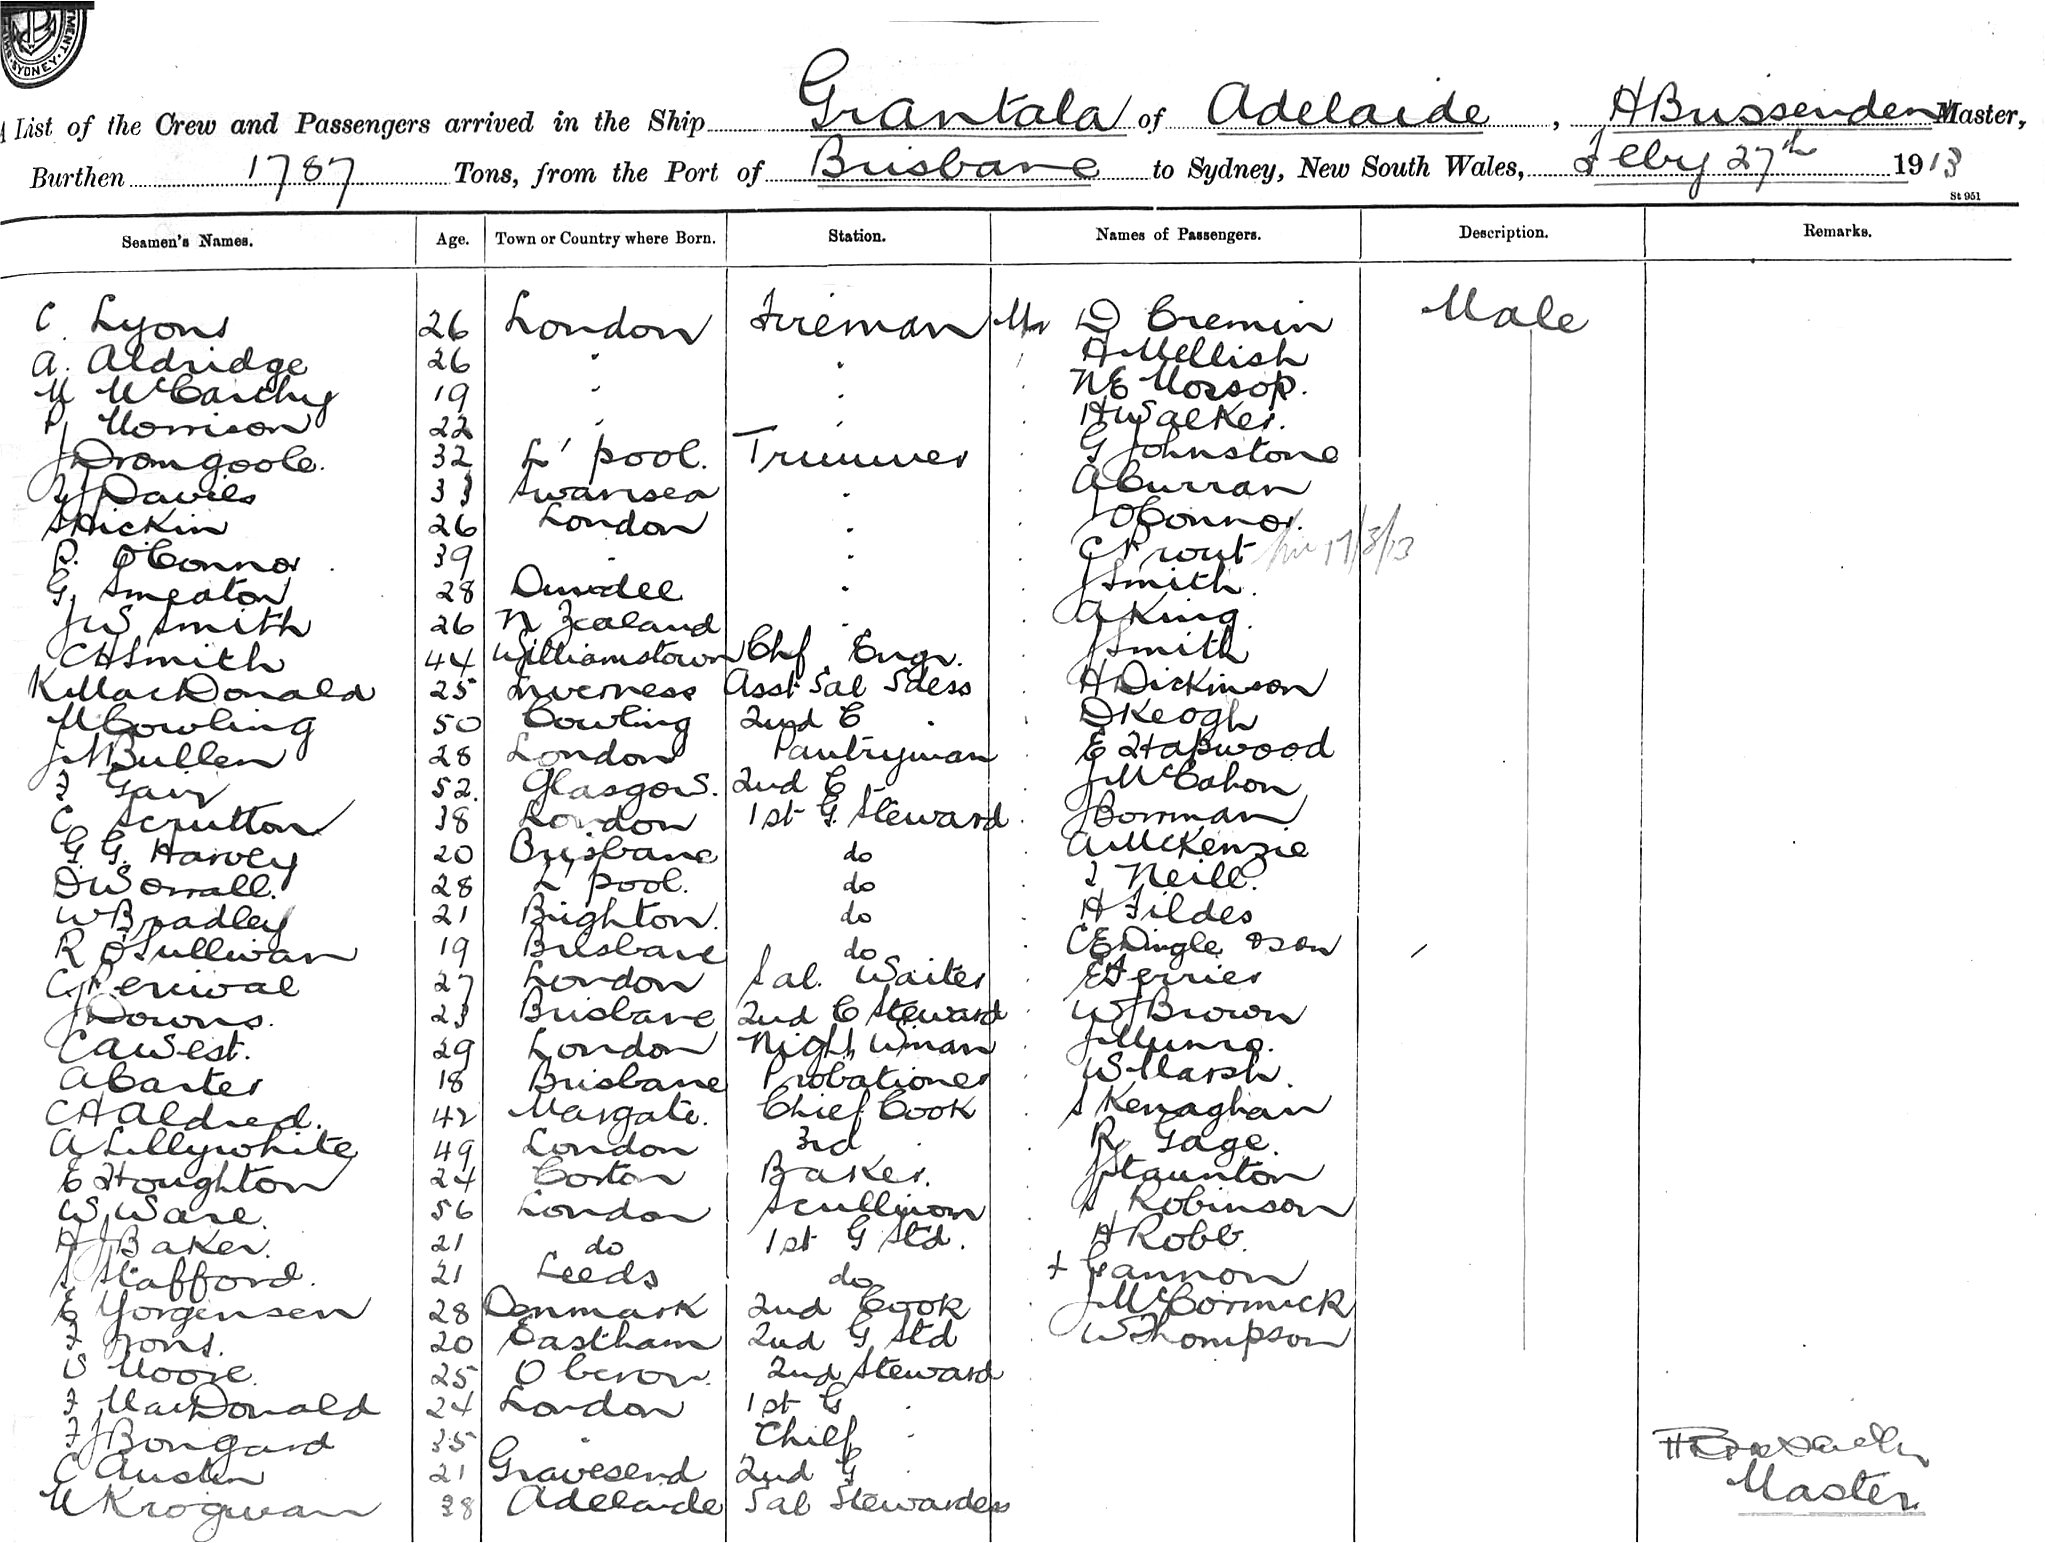 TMENT. SYDNEY.
A List of the Crew and Passengers arrived in the Ship Grantala of Adelaide, H Bussenden Master,
Burthen 1787 Tons, from the Port of Brisbane to Sydney, New South Wales, Feby 27th 1913
St 951
Seamen's Names. Age. Town or Country where Born. Station. Names of Passengers. Description. Remarks.
C. Lyons 26 London Fireman Mr D Cremin Male
A. Aldridge 26 " " " H Mellish
M McCarthy 19 " " " N E Mossop.
P Morrison 22 " " " H Walker.
J Dromgoole. 32 L'pool. Trimmer " G Johnstone
D J Davies 33 Swansea " " A Curran
S Hickin 26 London " " J O'Connor.
P. O'Connor 39 " " " C Prout 17/3/13
G Smeaton 28 Dundee " " J Smith.
J W Smith 26 N Zealand " " A King.
C H Smith 44 Williamstown Chf Engr. " J Smith
K MacDonald 25 Inverness Asst Sal Sdess " H Dickinson
M Cowling 50 Cowling 2nd C " " D Keogh
J M Bullen 28 London Pantryman " E Hapwood
F Gair 52. Glasgow. 2nd C " " J McCahon
C Scrutton 38 London 1st G. Steward " J Borman
G. G. Harvey 20 Brisbane do " A McKenzie
D Worrall. 28 L'pool. do " J Neill.
W Bradley 21 Brighton. do " H Fildes
R O'Sullivan 19 Brisbane do " C E Dingle & son
C Percival 27 London Sal. Waiter " E Ferrier
J Downs. 23 Brisbane 2nd C Steward " W J Brown
C A West. 29 London Night Wman " J Munro.
A Carter 18 Brisbane Probationer " W Marsh.
C H Aldred. 42 Margate. Chief Cook " S Kenaghan
A Lillywhite 49 London 3rd " " R Gage.
E Houghton 24 Corton Baker. " J Staunton
W Ware. 56 London Scullion " S Robinson
H J Baker. 21 do 1st G Std. " H Robb.
S Stafford. 21 Leeds do " F Gannon
E Yorgensen 28 Denmark 2nd Cook " J McCormick
F Irons. 20 Eastham 2nd G Std " W Thompson
S Moore. 25 Oberon. 2nd Steward
F MacDonald 24 London 1st G "
F J Bongard 35 " Chief "
C Austin 21 Gravesend 2nd G "
M Krogman 38 Adelaide Sal Stewardess
Master